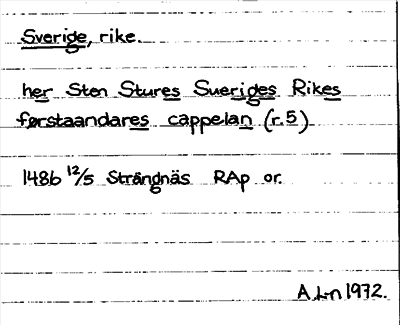 Sverige, rike.
her Sten Stures Sueriges Rikes
førstaandares cappelan (r.5)
1486 12/5 Strängnäs RAp or.
A L-n 1972.